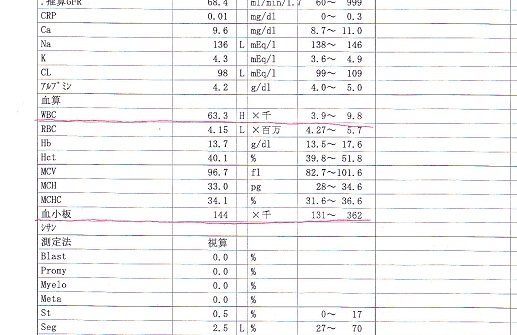 推算GFR 68.4 ml/min/1.7 60～ 999
CRP 0.01 mg/dl 0～ 0.3
Ca 9.6 mg/dl 8.7～ 11.0
Na 136 L mEq/l 138～ 146
K 4.3 mEq/l 3.6～ 4.9
CL 98 L mEq/l 99～ 109
ｱﾙﾌﾞﾐﾝ 4.2 g/dl 4.0～ 5.0
血算
WBC 63.3 H ×千 3.9～ 9.8
RBC 4.15 L ×百万 4.27～ 5.7
Hb 13.7 g/dl 13.5～ 17.6
Hct 40.1 % 39.8～ 51.8
MCV 96.7 fl 82.7～101.6
MCH 33.0 pg 28～ 34.6
MCHC 34.1 % 31.6～ 36.6
血小板 144 ×千 131～ 362
ｼｻﾝ
測定法 視算
Blast 0.0 %
Promy 0.0 %
Myelo 0.0 %
Meta 0.0 %
St 0.5 % 0～ 17
Seg 2.5 L % 27～ 70